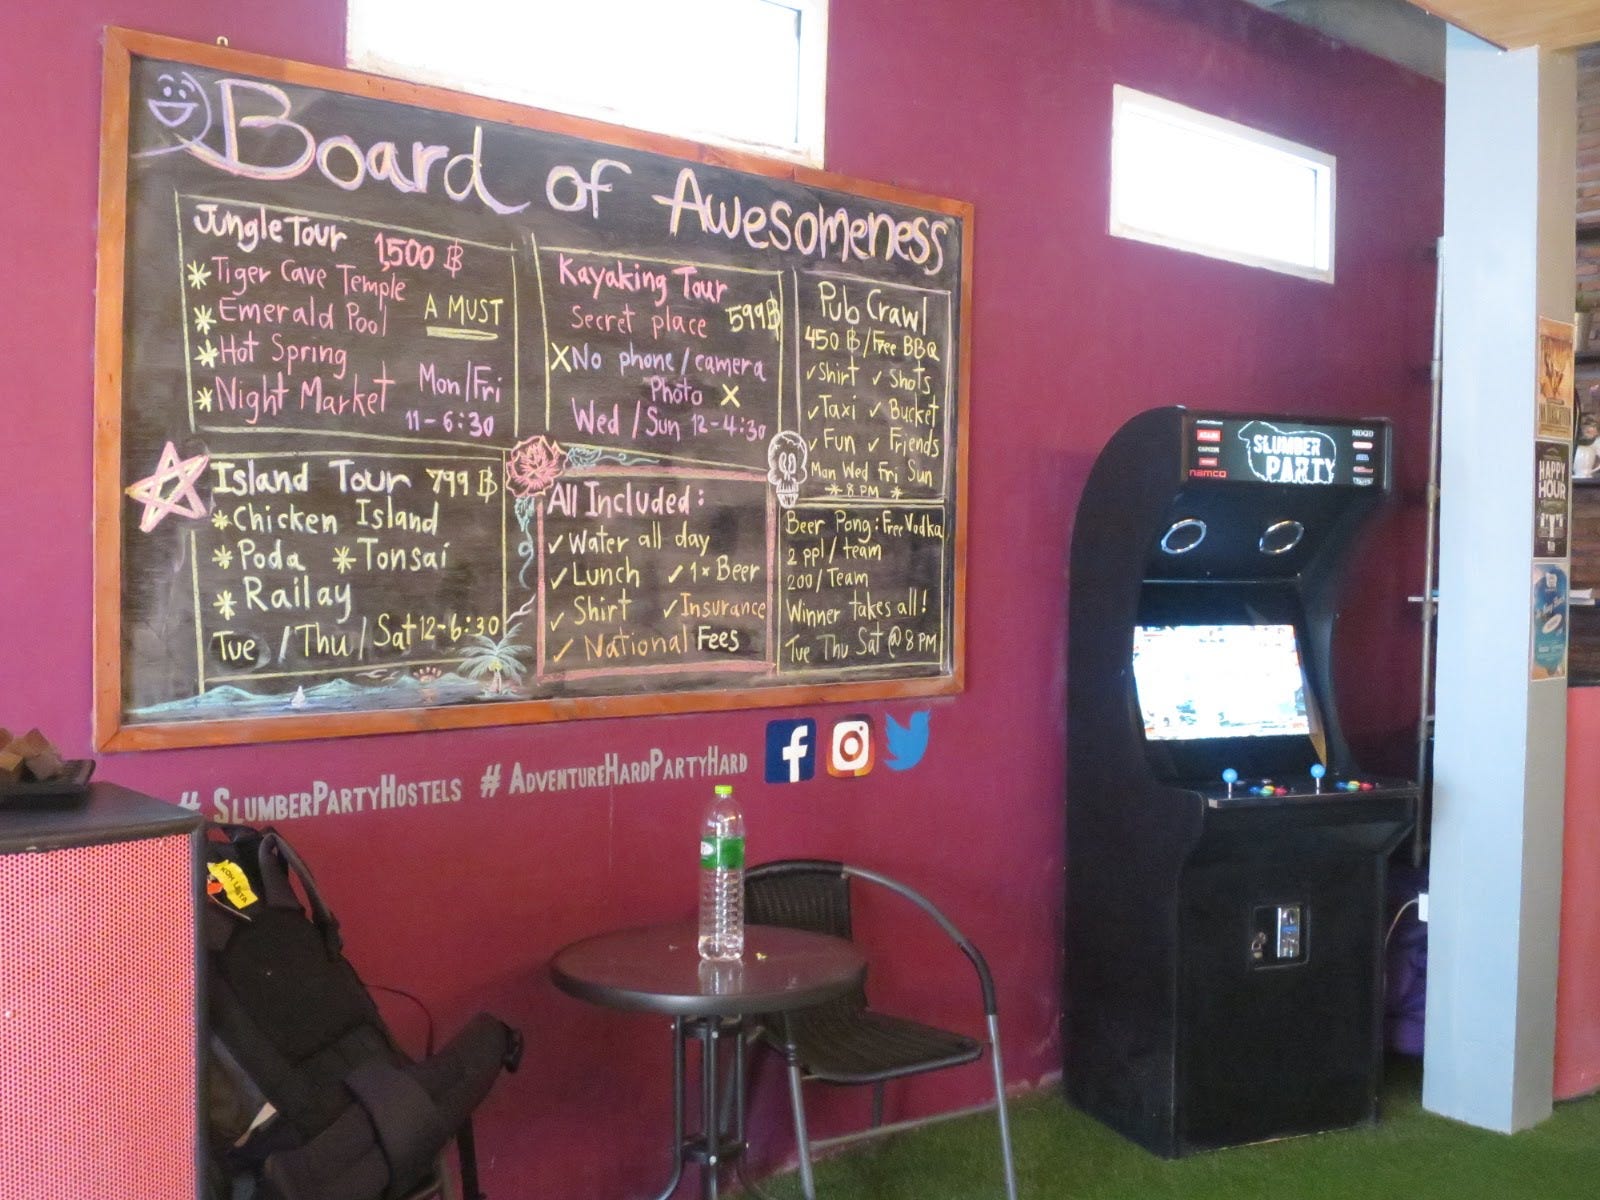 Board of Awesomeness
Jungle Tour 1,500 ฿
* Tiger Cave Temple
* Emerald Pool A MUST
* Hot Spring
* Night Market Mon/Fri
11-6:30
Kayaking Tour
Secret place 599฿
X No phone/camera
Photo X
Wed/Sun 12-4:30
Pub Crawl
450 ฿/Free BBQ
✓ Shirt ✓ Shots
✓ Taxi ✓ Bucket
✓ Fun ✓ Friends
Mon Wed Fri Sun
* 8 PM *
Island Tour 799 ฿
* Chicken Island
* Poda * Tonsai
* Railay
Tue/Thu/Sat 12-6:30
All Included:
✓ Water all day
✓ Lunch ✓ 1x Beer
✓ Shirt ✓ Insurance
✓ National Fees
Beer Pong: Free Vodka
2 ppl/team
200/Team
Winner takes all!
Tue Thu Sat @ 8 PM
# SlumberPartyHostels # AdventureHardPartyHard
SLUMBER
PARTY
NEOGEO
CAPCOM
namco
HAPPY
HOUR